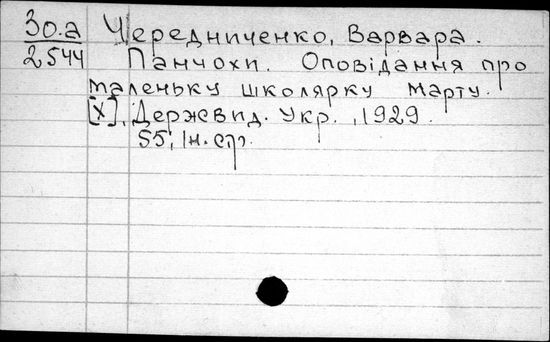 30.а Чередниченко, Варвара.
2544 Панчохи. Оповідання про
маленьку школярку Марту.
[Х], Держвид. Укр., 1929.
55, 1н. стр.